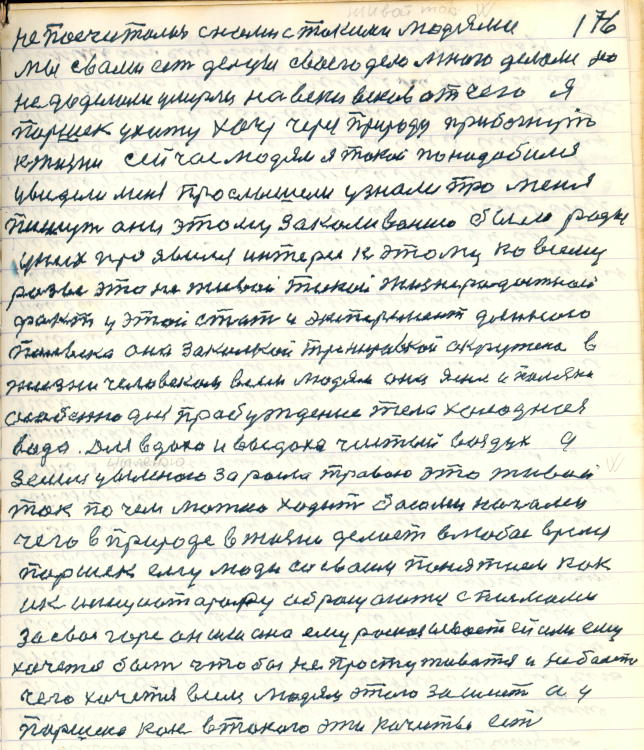 176
не посчитались с нами с такими людями
мы с вами ест делцы своего дело много делали но
не доделали умерли на веки веков отчего Я
паршек укижу хочу через природу прибогнуть
к жизни сейчас людям я такой понадобился
увидели меня прослышели узнали про меня
пишут они этому закаливанию было ради
у них проявился интерес к этому ко всему
разве это не живой такой жизнерадостной
факт у этой стат и эксперемент данного
человека она закалкой тренировкой окружена в
жизни человеком всем людям она ясна и
особенно для прабуждение тела холодная
вода. Для вдоха и выдоха чистый воздух а
земля увлажною заросла травою это живой
ток по чем можно ходит босому начали
чего в природе в жизни делает в любое время
паршек ему люди со своим понятием как
и к инициатару обращаются с писмами
за свое горе он или она ему росказывает ей или ему
хочется быт чтобы не простуживатся и не болет
чего хочется всем людям этого зимит а у
паршека как в такого эти качства ест